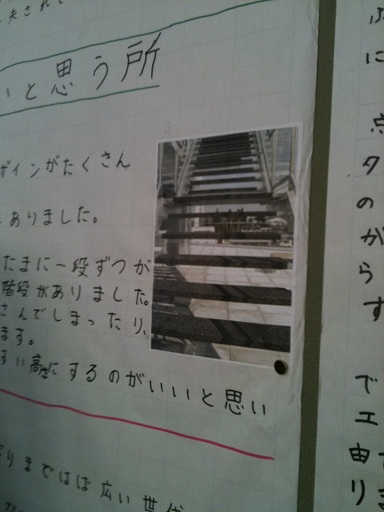 夫されて
いと思う所
ザインがたくさん
ありました。
たまに一段ずつが
階段がありました。
さんでしまったり、
ます。
すい高さにするのがいいと思い
りまではは広い世代
に
点
タ
の
か
ら
す
で
エ
由
り